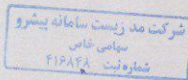 شرکت مد زیست سامانه پیشرو
سهامی خاص
شماره ثبت ۴۱۶۸۴۸